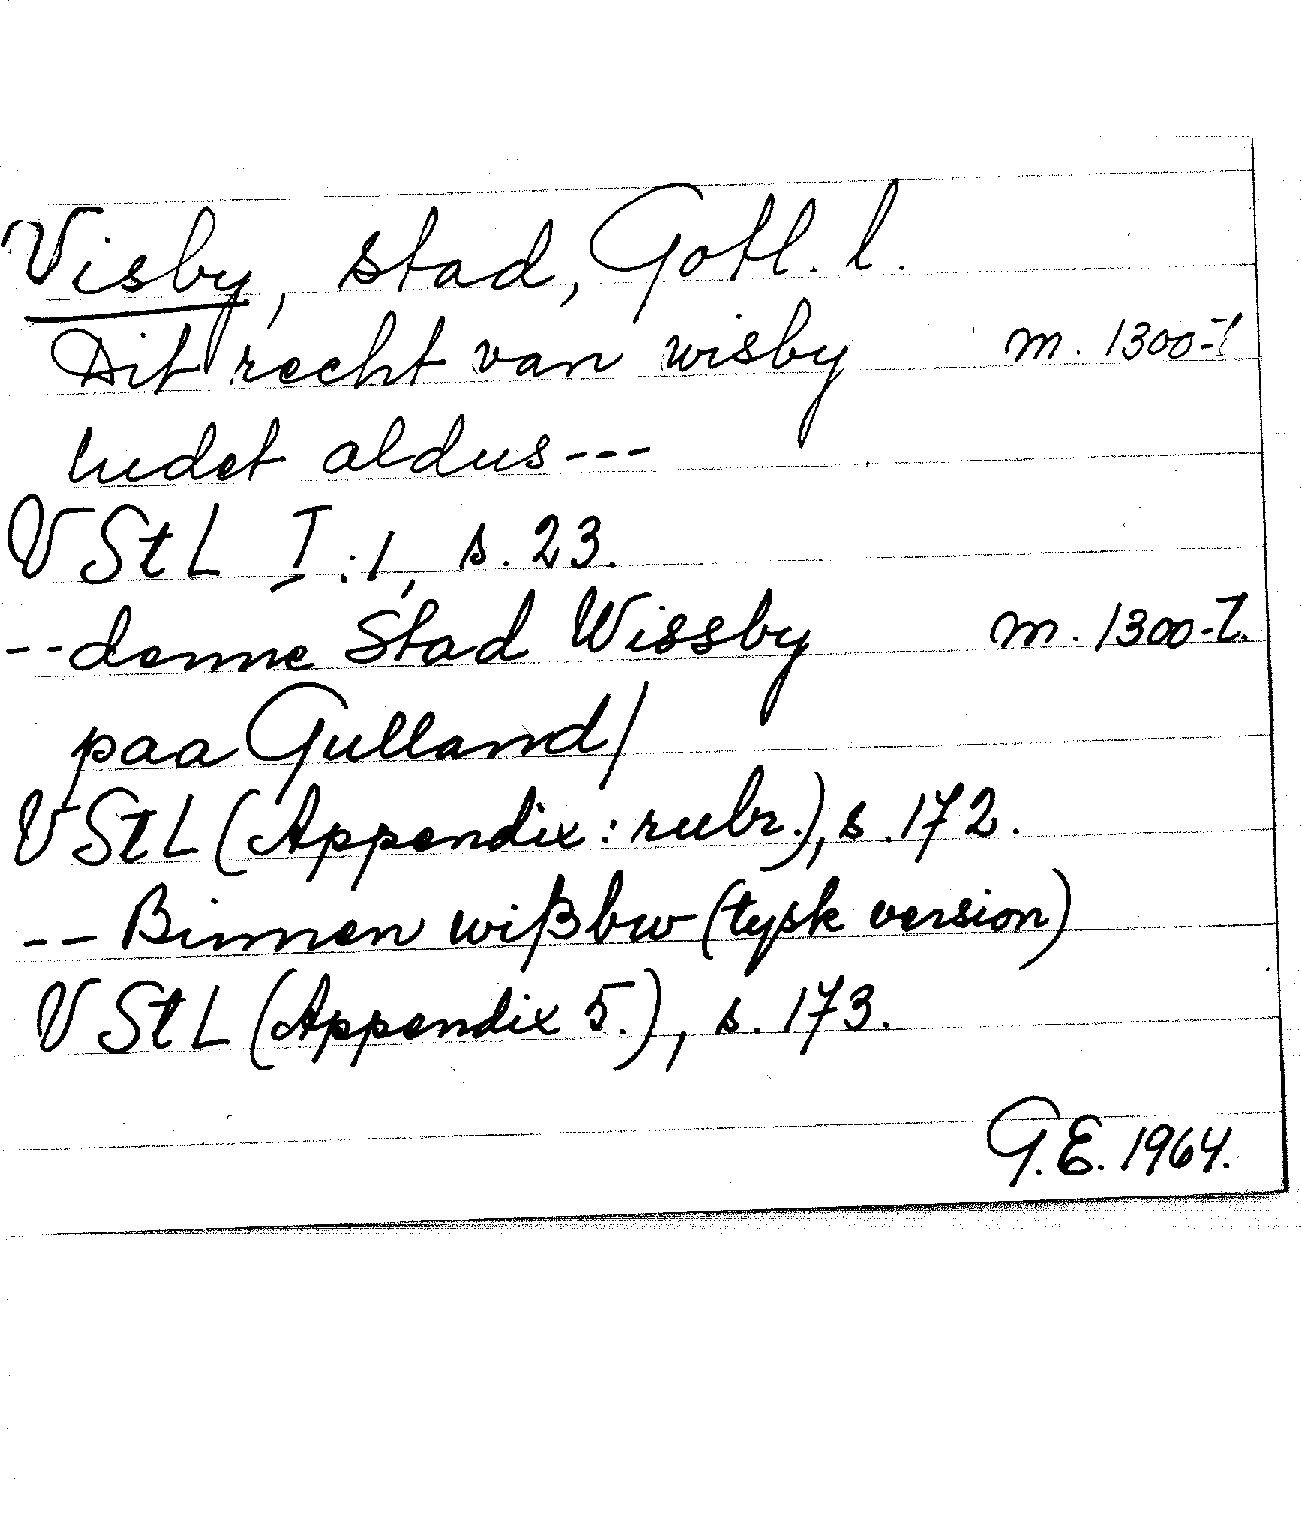 Visby, stad, Gotl. l.
Dit recht van wisby m. 1300-t.
ludet aldus---
VStL I:1, s. 23.
--denne Stad Wissby m. 1300-t.
paa Gulland/
VStL (Appendix: rubr.), s. 172.
-- Binnen wißbw (tysk version)
VStL (Appendix 5.), s. 173.
G.E. 1964.